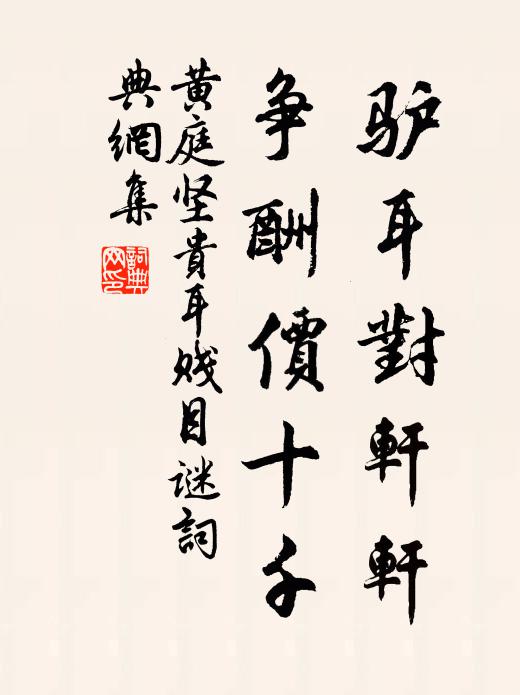 驴耳對軒軒
争酬價十千
黄庭坚貴耳贱目谜詞
典網集
詞典網印